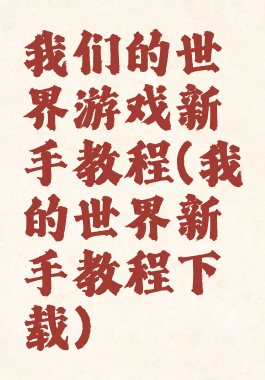 我们的世
界游戏新
手教程(我
的世界新
手教程下
载)